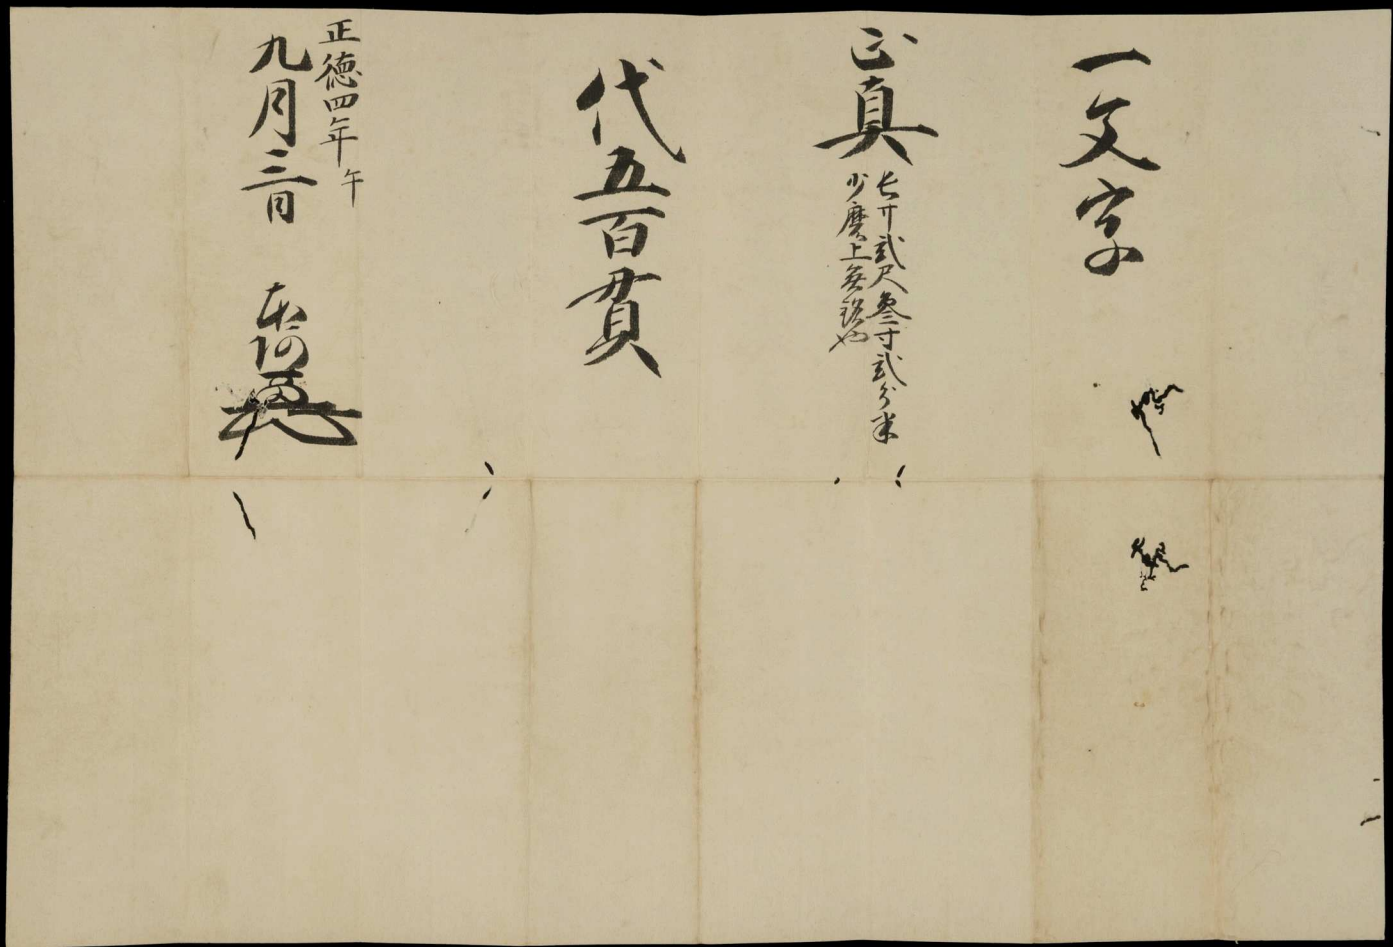 一文字
正真
長サ弐尺叁寸弐分半
少磨上無銘也
代五百貫
正徳四年午
九月三日
本阿